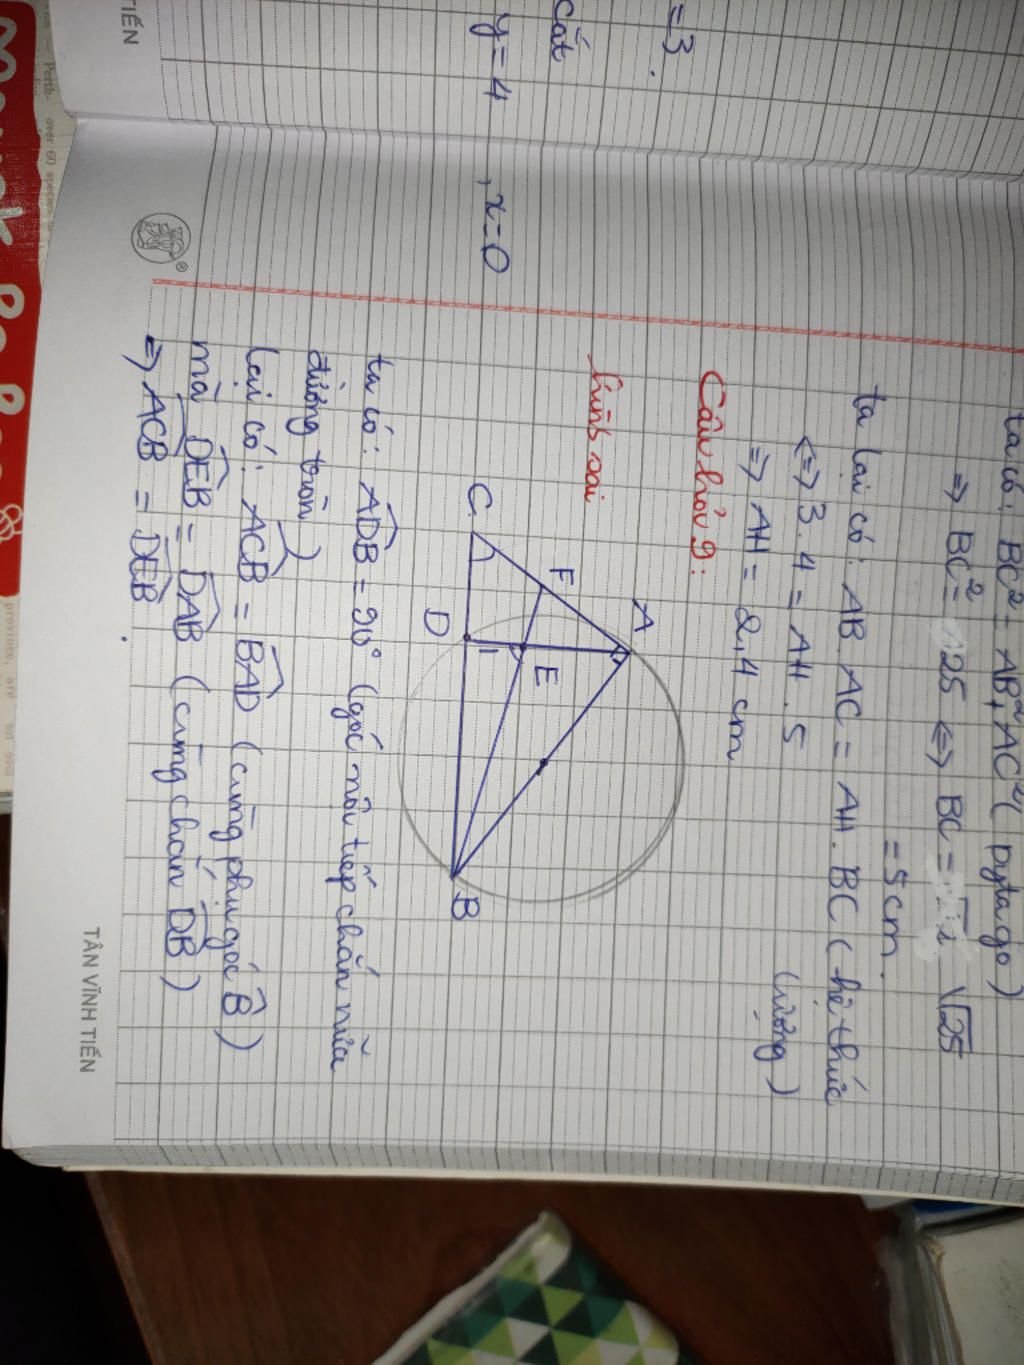 TIẾN
= 3.
cắt
y = 4
, x = 0
ta có: BC² = AB² + AC² (pytago)
=> BC² = 25 <=> BC = √25
= 5 cm.
ta lại có: AB. AC = AH. BC (hệ thức
lượng)
<=> 3. 4 = AH. 5
=> AH = 2,4 cm
Câu hỏi 9:
hình sai
A
F
E
C
D
1
B
ta có: ADB = 90° (góc nội tiếp chắn nửa
đường tròn)
lại có: ACB = BAD (cùng phụ góc B)
mà DEB = DAB (cùng chắn DB)
=> ACB = DEB
TÂN VĨNH TIẾN
®
Perth-
over 60
province, are